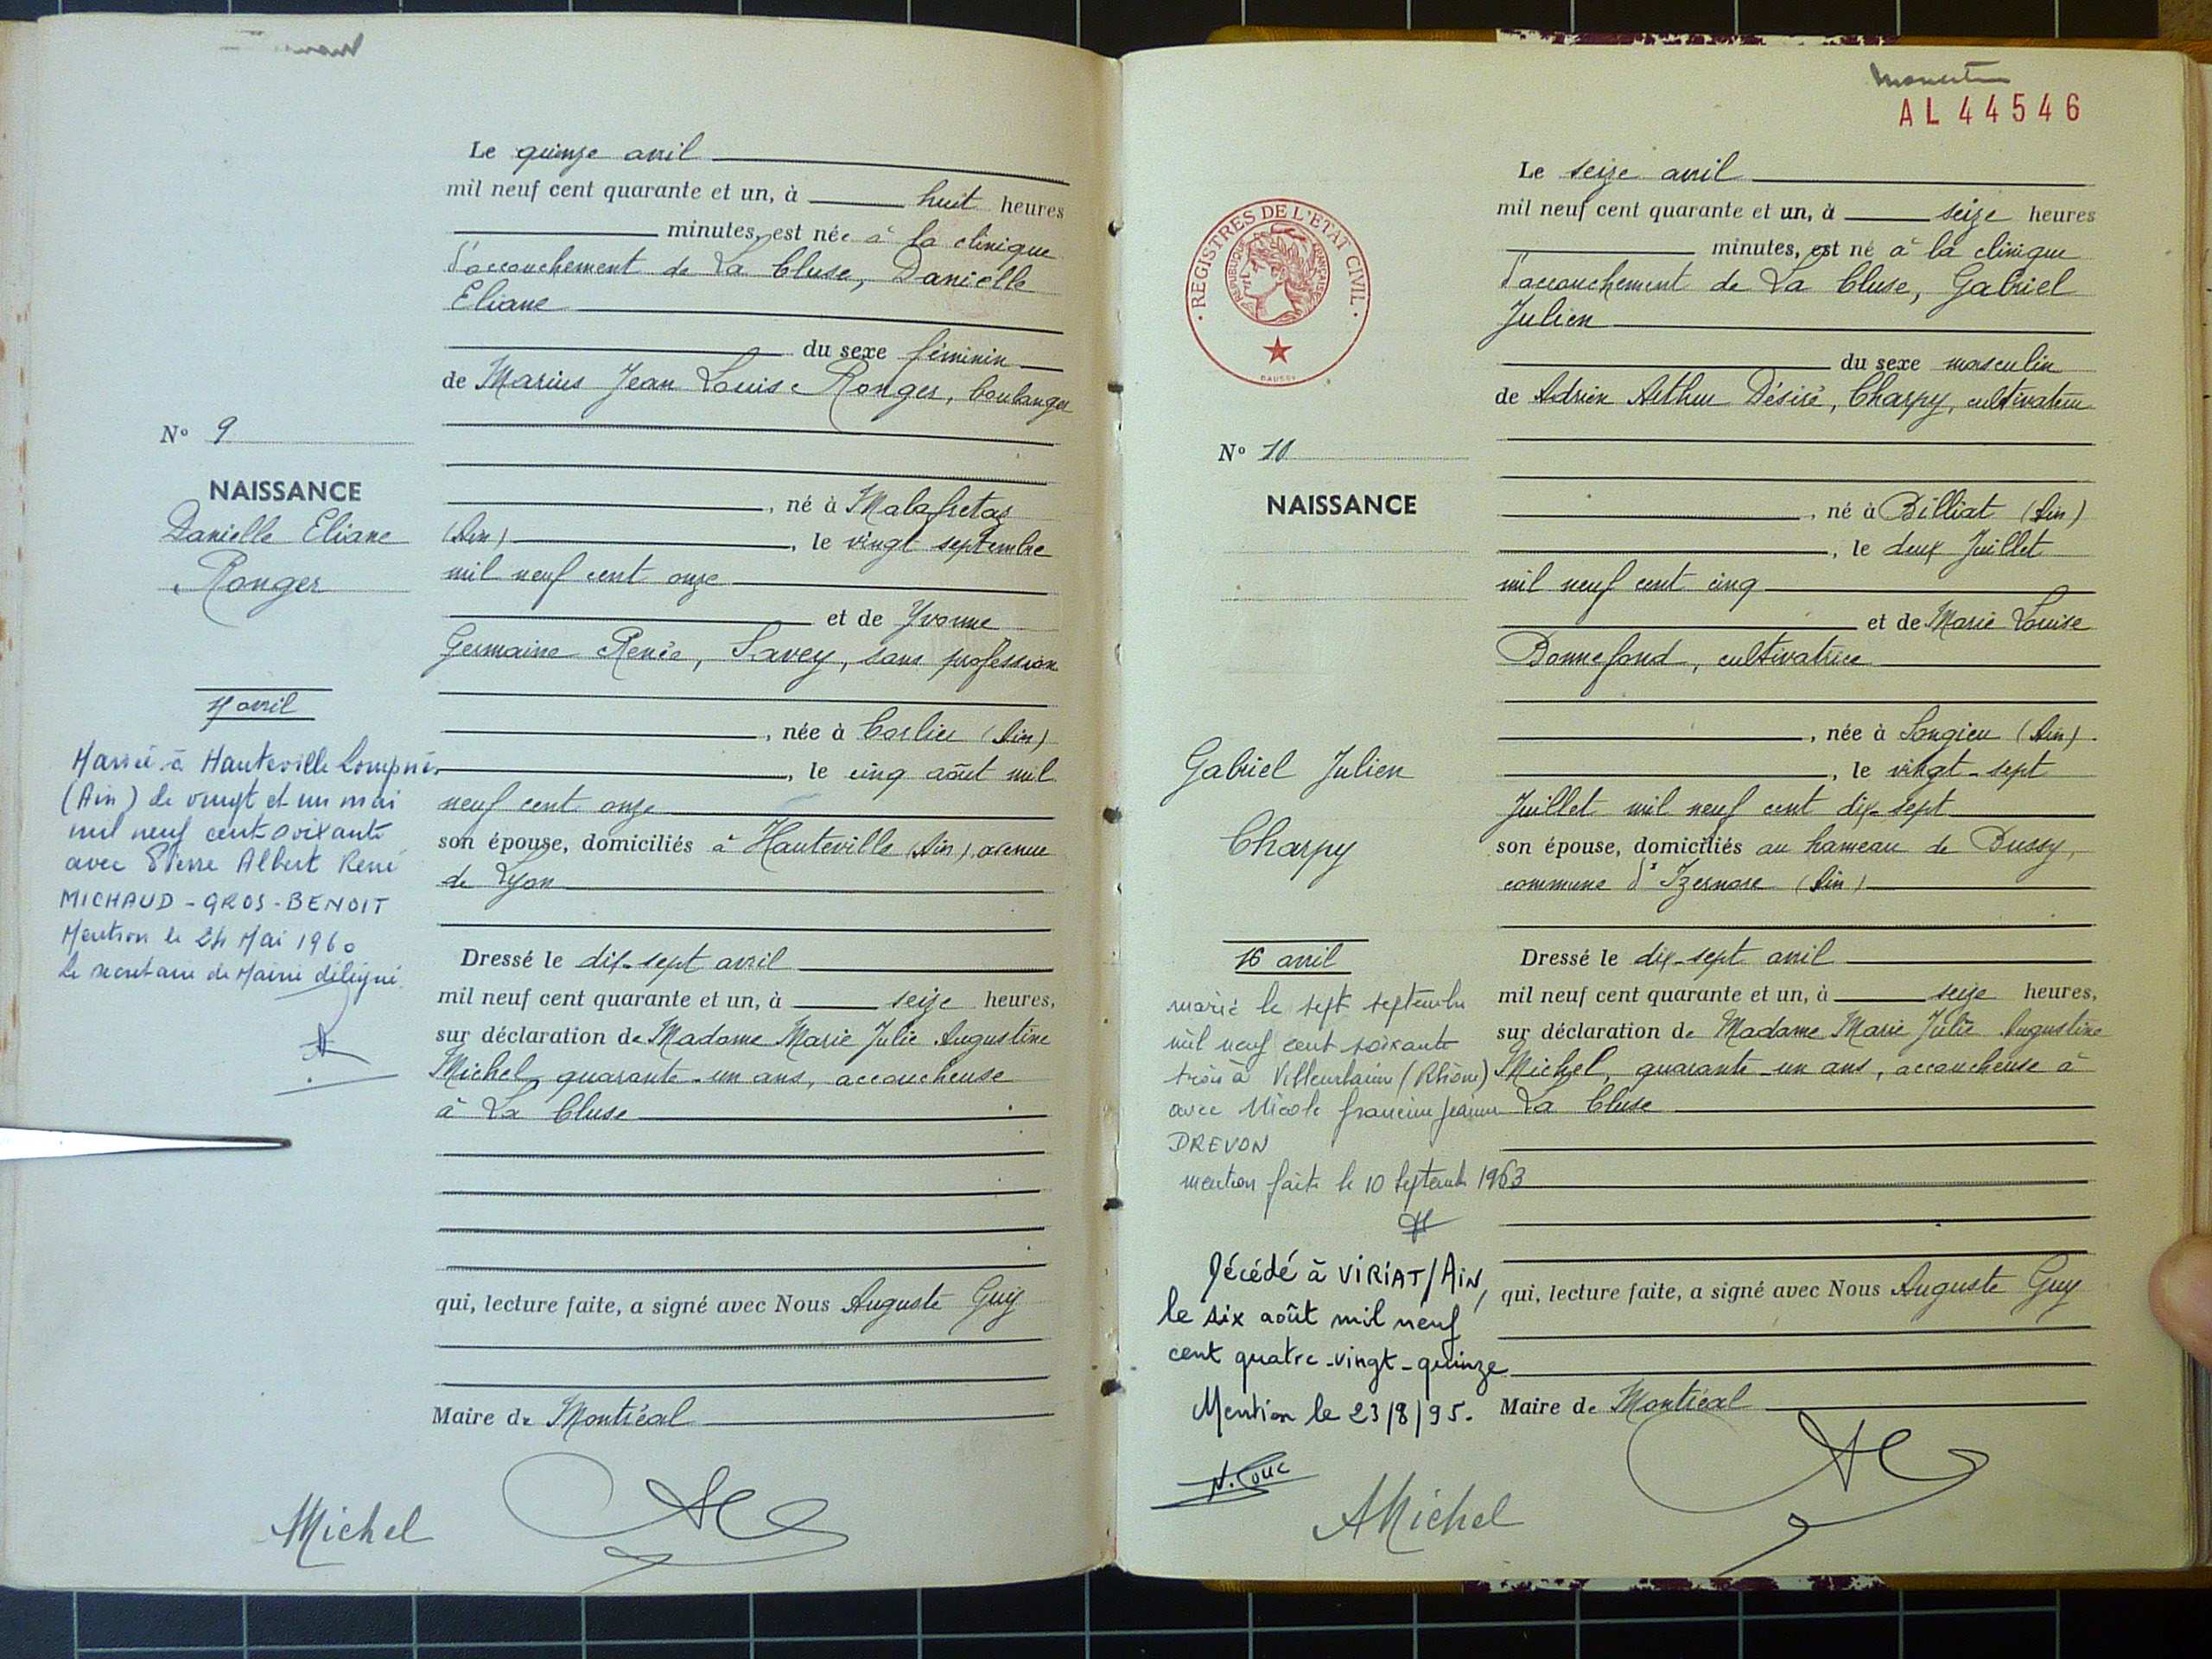 Le quinze avril
mil neuf cent quarante et un, à huit heures
minutes, est née à la clinique
d'accouchement de La Cluse, Danielle
Eliane
du sexe féminin
de Marius Jean Louis Ronger, boulanger
, né à Malafretaz
(Ain), le vingt septembre
mil neuf cent onze
et de Yvonne
Germaine Renée, Savey, sans profession
, née à Corlier (Ain)
, le cinq août mil
neuf cent onze
son épouse, domiciliés à Hauteville (Ain), avenue
de Lyon
Dressé le dix-sept avril
mil neuf cent quarante et un, à seize heures,
sur déclaration de Madame Marie Julie Augustine
Michel, quarante-un ans, accoucheuse
à La Cluse
qui, lecture faite, a signé avec Nous Auguste Guy
Maire de Montréal
Michel
N° 9
NAISSANCE
Danielle Eliane
Ronger
avril
Mariée à Hauteville Lompnès
(Ain) le vingt et un mai
mil neuf cent soixante
avec Pierre Albert René
MICHAUD-GROS-BENOIT
Mention le 24 Mai 1960
Le secrétaire de Mairie délégué
AL 44546
Le seize avril
mil neuf cent quarante et un, à seize heures
minutes, est né à la clinique
d'accouchement de La Cluse, Gabriel
Julien
du sexe masculin
de Adrien Arthur Désiré, Charpy, cultivateur
, né à Billiat (Ain)
, le deux Juillet
mil neuf cent cinq
et de Marie Louise
Bonnefond, cultivatrice
, née à Songieu (Ain)
, le vingt-sept
Juillet mil neuf cent dix-sept
son épouse, domiciliés au hameau de Bussy,
commune d'Izernore (Ain)
Dressé le dix-sept avril
mil neuf cent quarante et un, à seize heures,
sur déclaration de Madame Marie Julie Augustine
Michel, quarante-un ans, accoucheuse à
La Cluse
qui, lecture faite, a signé avec Nous Auguste Guy
Maire de Montréal
AMichel
REGISTRES DE L'ETAT CIVIL
REPUBLIQUE FRANÇAISE
N° 10
NAISSANCE
Gabriel Julien
Charpy
16 avril
marié le sept septembre
mil neuf cent soixante
trois à Villeurbanne (Rhône)
avec Nicole Francine Jeanne
DREVON
mention faite le 10 Septembre 1963
Décédé à VIRIAT/AIN,
le six août mil neuf
cent quatre-vingt-quinze
Mention le 23/8/95.